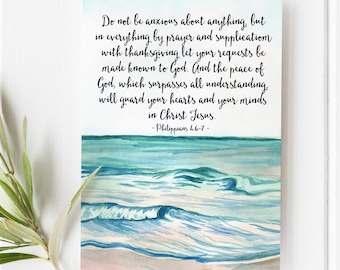 Do not be anxious about anything, but
in everything by prayer and supplication
with thanksgiving let your requests be
made known to God. And the peace of
God, which surpasses all understanding,
will guard your hearts and your minds
in Christ Jesus.
- Philippians 4:6-7 -